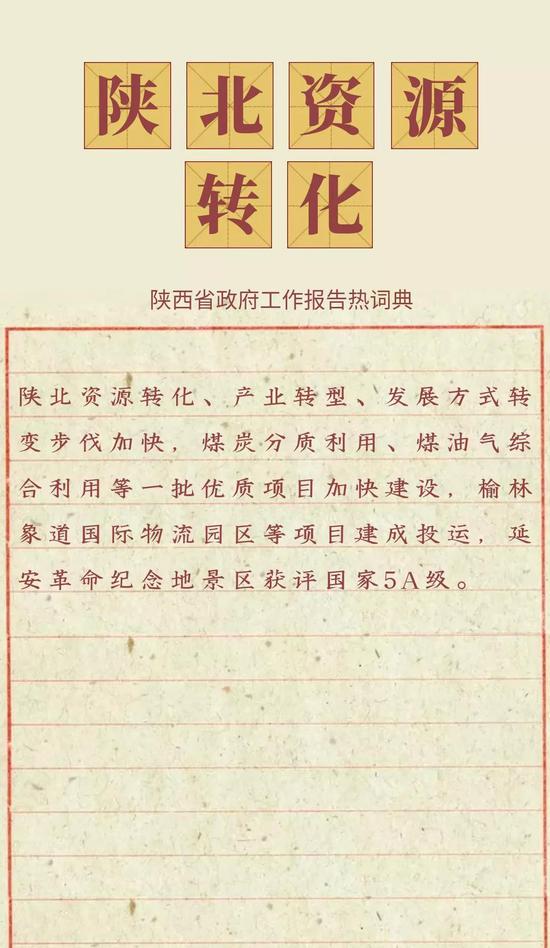 陕北资源
转化
陕西省政府工作报告热词典
陕北资源转化、产业转型、发展方式转
变步伐加快，煤炭分质利用、煤油气综
合利用等一批优质项目加快建设，榆林
象道国际物流园区等项目建成投运，延
安革命纪念地景区获评国家5A级。